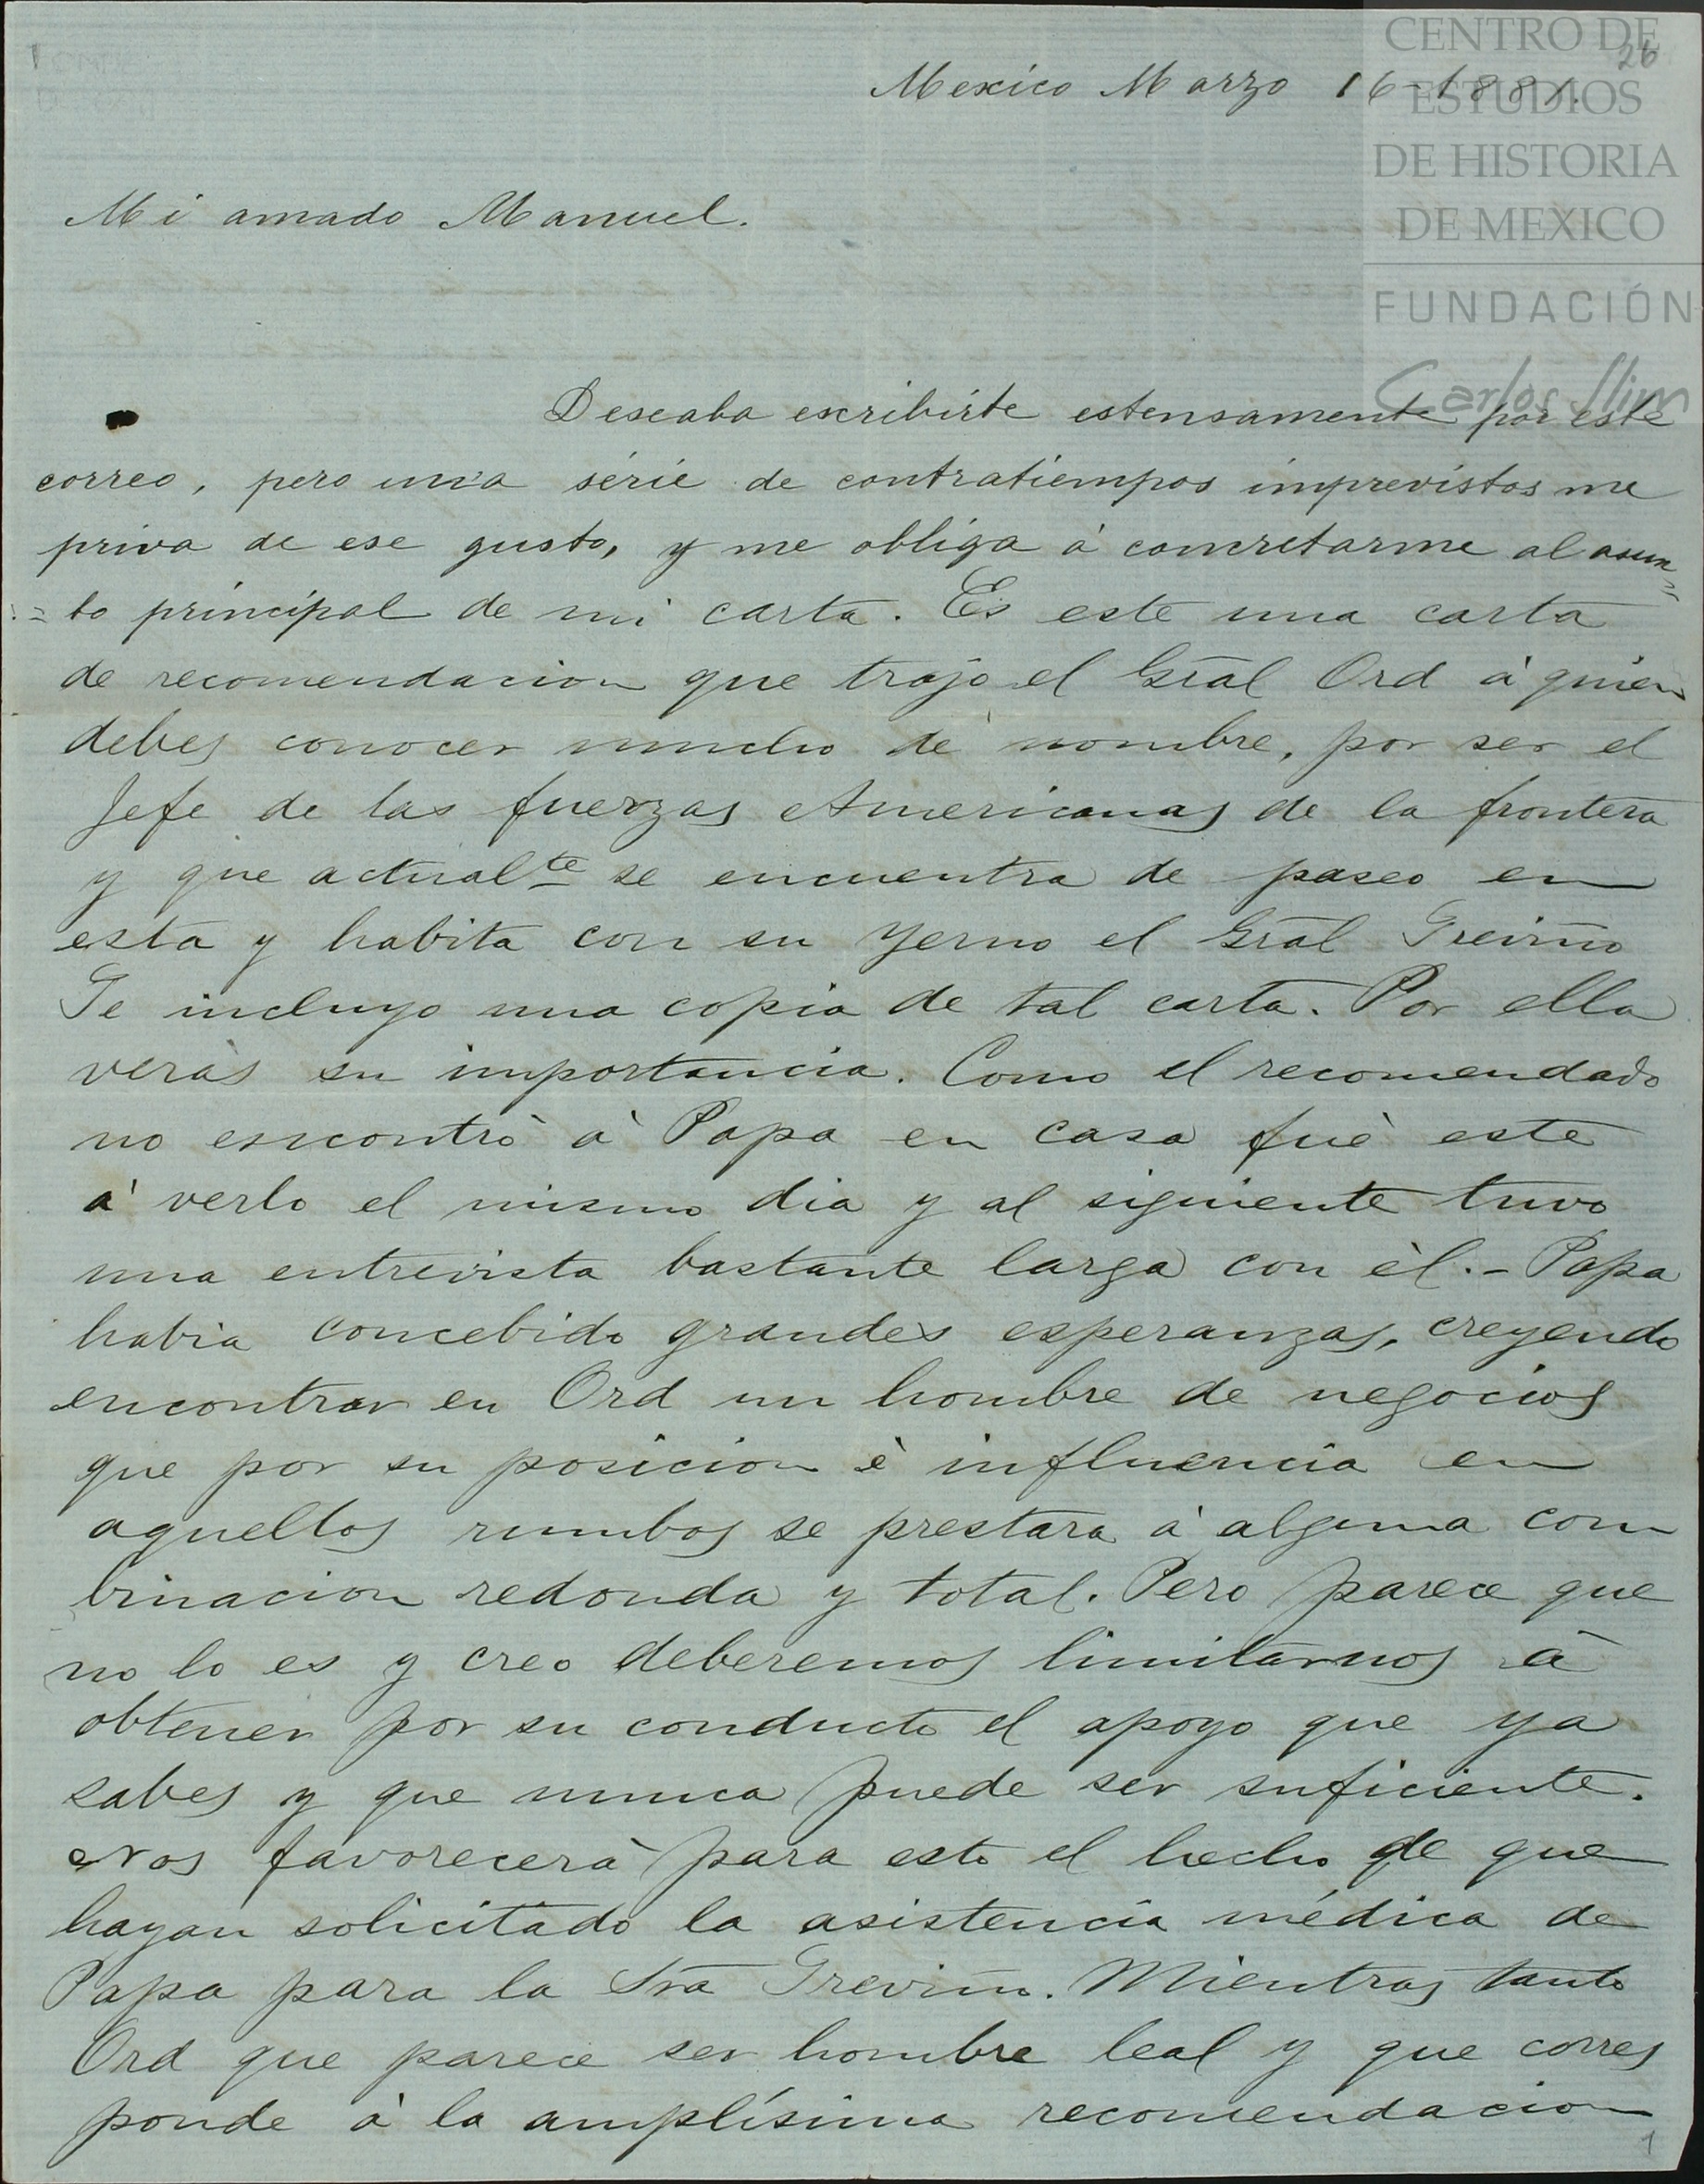 CENTRO DE
ESTUDIOS
DE HISTORIA
DE MEXICO
FUNDACIÓN
Carlos Slim
26
Mexico Marzo 16-1881.
Mi amado Manuel.
Deseaba escribirte estensamente por este
correo, pero una série de contratiempos imprevistos me
priva de ese gusto, y me obliga á concretarme al asun=
=to principal de mi carta. Es este una carta
de recomendacion que trajo el Gral Ord á quien
debes conocer mucho de nombre, por ser el
Jefe de las fuerzas Americanas de la frontera
y que actualte se encuentra de paseo en
esta y habita con su yerno el Gral Treviño
Te incluyo una copia de tal carta. Por ella
verás su importancia. Como el recomendado
no encontró á Papa en casa fué este
á verlo el mismo dia y al siguiente tuvo
una entrevista bastante larga con él.- Papa
habia concebido grandes esperanzas, creyendo
encontrar en Ord un hombre de negocios
que por su posicion é influencia en
aquellos rumbos se prestara á alguna com
binacion redonda y total. Pero parece que
no lo es y creo deberemos limitarnos á
obtener por su conducto el apoyo que ya
sabes y que nunca puede ser suficiente.
Nos favorecerá para esto el hecho de que
hayan solicitado la asistencia médica de
Papa para la Sra Treviño. Mientras tanto
Ord que parece ser hombre leal y que corres
ponde á la amplísima recomendacion
1